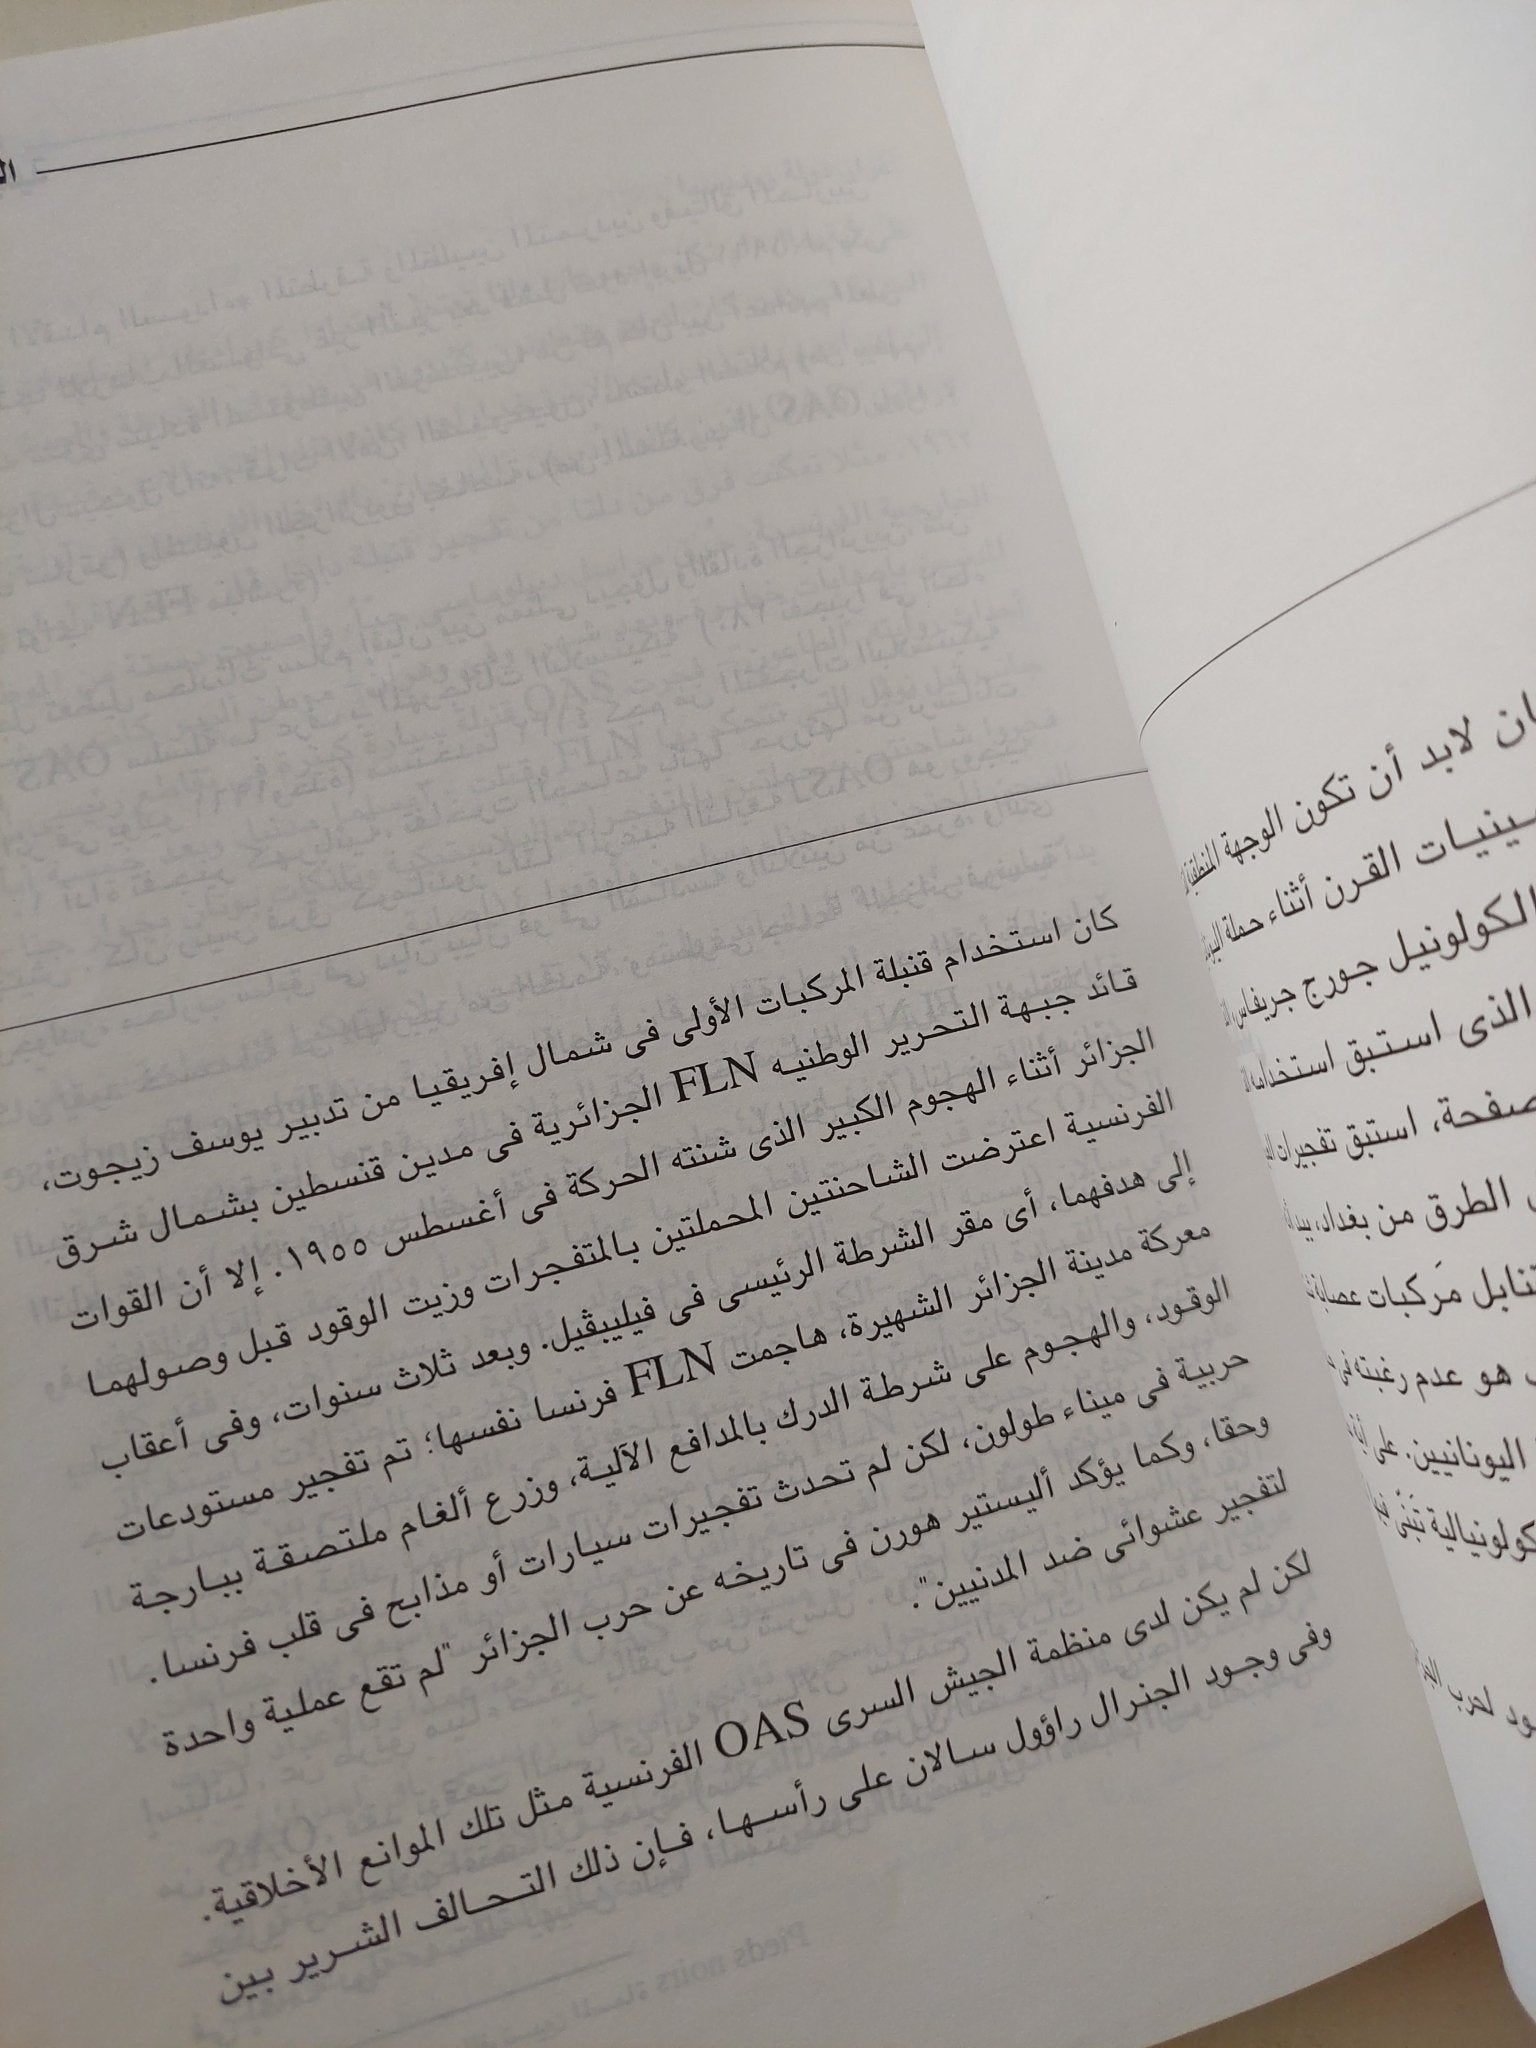 ان لابد أن تكون الوجهة المنطقية
ـينيات القرن أثناء حملة
الكولونيل جورج جريفاس،
الذى استبق استخدامه
صفحة، استبق تفجيرات
الطرق من بغداد، بيد
مَركبات عصابة
هو عدم رغبته فى
اليونانيين. على
كولونيالية تبنّى
ـود لحرب
الـ
كان استخدام قنبلة المركبات الأولى فى شمال إفريقيا من تدبير يوسف زيجوت،
قائد جبهة التحرير الوطنيه FLN الجزائرية فى مدين قنسطين بشمال شرق
الجزائر أثناء الهجوم الكبير الذى شنته الحركة فى أغسطس ١٩٥٥. إلا أن القوات
الفرنسية اعترضت الشاحنتين المحملتين بالمتفجرات وزيت الوقود قبل وصولهما
إلى هدفهما، أى مقر الشرطة الرئيسى فى فيليبڤيل. وبعد ثلاث سنوات، وفى أعقاب
معركة مدينة الجزائر الشهيرة، هاجمت FLN فرنسا نفسها؛ تم تفجير مستودعات
الوقود، والهجوم على شرطة الدرك بالمدافع الآلية، وزرع ألغام ملتصقة ببارجة
حربية فى ميناء طولون، لكن لم تحدث تفجيرات سيارات أو مذابح فى قلب فرنسا.
وحقا، وكما يؤكد أليستير هورن فى تاريخه عن حرب الجزائر "لم تقع عملية واحدة
لتفجير عشوائى ضد المدنيين".
لكن لم يكن لدى منظمة الجيش السرى OAS الفرنسية مثل تلك الموانع الأخلاقية.
وفى وجود الجنرال راؤول سالان على رأسها، فإن ذلك التحالف الشرير بين